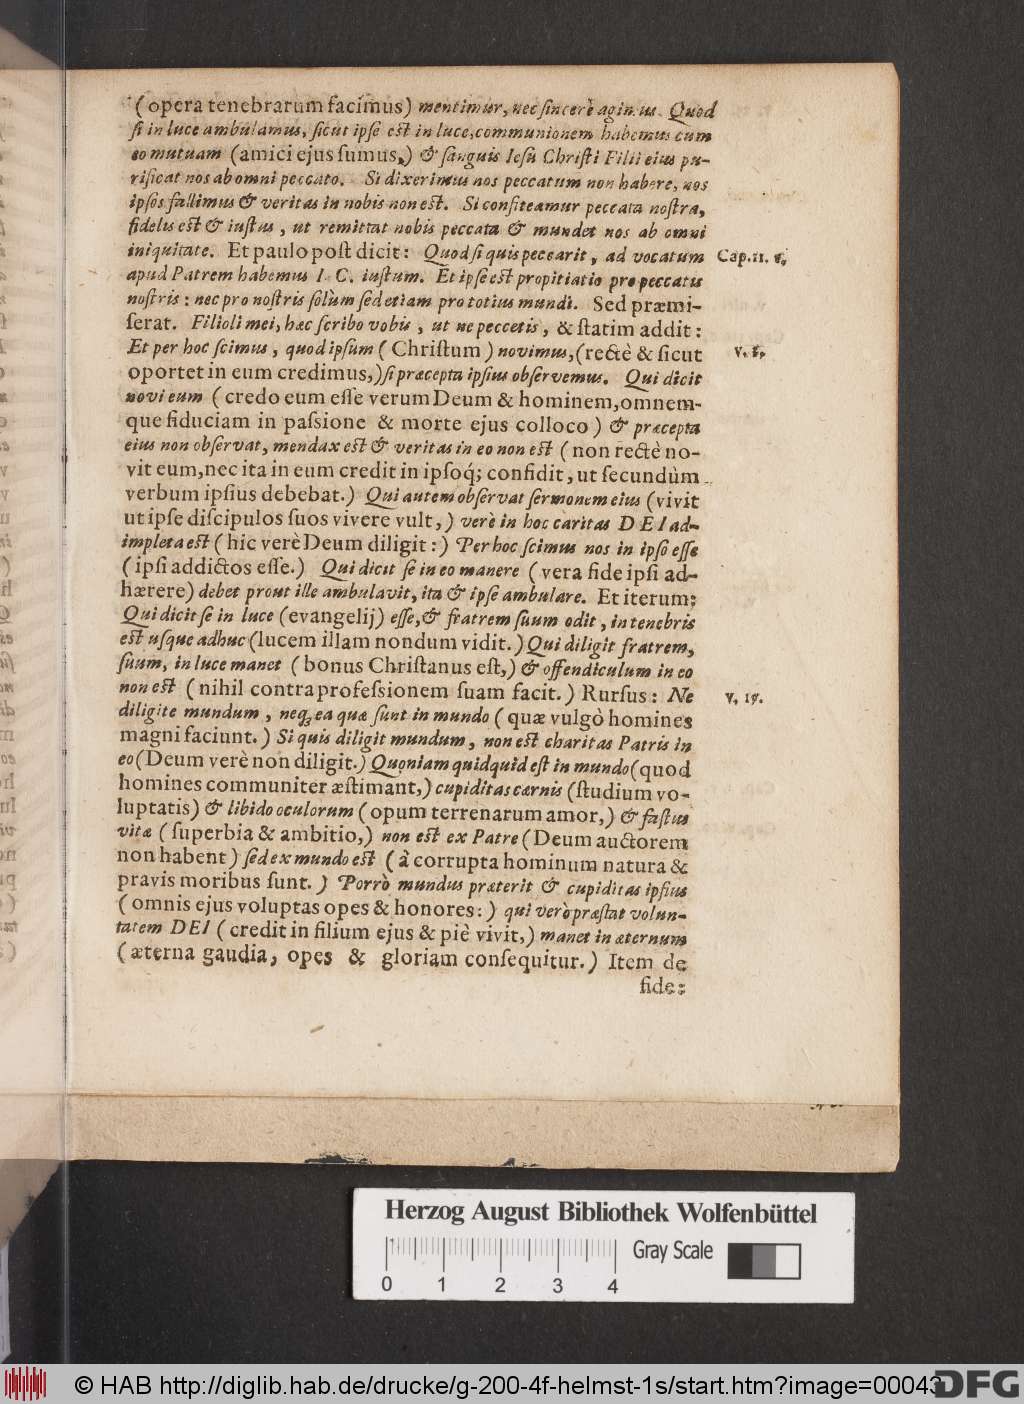 (opera tenebrarum facimus) mentimur, nec sincerè agimus. Quod
si in luce ambulamus, sicut ipse est in luce, communionem habemus cum
eo mutuam (amici ejus sumus,) & sanguis Iesu Christi Filii eius pu-
rificat nos ab omni peccato. Si dixerimus nos peccatum non habere, nos
ipsos fallimus & veritas in nobis non est. Si confiteamur peccata nostra,
fidelis est & iustus, ut remittat nobis peccata & mundet nos ab omni
iniquitate. Et paulo post dicit: Quod si quis peccarit, ad vocatum
Cap. 11. 1,
apud Patrem habemus I. C. iustum. Et ipse est propitiatio pro peccatis
nostris: nec pro nostris solùm sed etiam pro totius mundi. Sed præmi-
serat. Filioli mei, hæc scribo vobis, ut ne peccetis, & statim addit:
Et per hoc scimus, quod ipsum (Christum) novimus, (rectè & sicut
v. 5,
oportet in eum credimus,) si præcepta ipsius observemus. Qui dicit
novi eum (credo eum esse verum Deum & hominem, omnem-
que fiduciam in passione & morte ejus colloco) & præcepta
eius non observat, mendax est & veritas in eo non est (non rectè no-
vit eum, nec ita in eum credit in ipsoq́; confidit, ut secundùm
verbum ipsius debebat.) Qui autem observat sermonem eius (vivit
ut ipse discipulos suos vivere vult,) verè in hoc caritas DEI ad-
impleta est (hic verè Deum diligit:) Per hoc scimus nos in ipso esse
(ipsi addictos esse.) Qui dicit se in eo manere (vera fide ipsi ad-
hærere) debet prout ille ambulavit, ita & ipse ambulare. Et iterum:
Qui dicit se in luce (evangelij) esse, & fratrem suum odit, in tenebris
est usque adhuc (lucem illam nondum vidit.) Qui diligit fratrem,
suum, in luce manet (bonus Christanus est,) & offendiculum in eo
non est (nihil contra professionem suam facit.) Rursus: Ne
v. 15.
diligite mundum, neq; ea quæ sunt in mundo (quæ vulgò homines
magni faciunt.) Si quis diligit mundum, non est charitas Patris in
eo (Deum verè non diligit.) Quoniam quidquid est in mundo (quod
homines communiter æstimant,) cupiditas carnis (studium vo-
luptatis) & libido oculorum (opum terrenarum amor,) & fastus
vitæ (superbia & ambitio,) non est ex Patre (Deum auctorem
non habent) sed ex mundo est (à corrupta hominum natura &
pravis moribus sunt.) Porrò mundus præterit & cupiditas ipsius
(omnis ejus voluptas opes & honores:) qui verò præstat volun-
tatem DEI (credit in filium ejus & piè vivit,) manet in æternum
(æterna gaudia, opes & gloriam consequitur.) Item de
fide:
Herzog August Bibliothek Wolfenbüttel
Gray Scale
0 1 2 3 4
© HAB http://diglib.hab.de/drucke/g-200-4f-helmst-1s/start.htm?image=00043
DFG